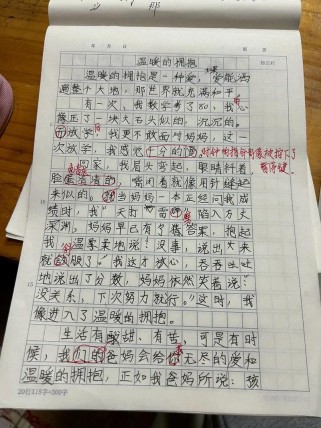 那
年 月 日
温暖的拥抱
温暖的拥抱是一种爱,爱能洒
遍整个大地,那世界就充满和平
有一次,我数学考了80,我心
像压了一块大石头似的,沉沉的。
放学,我更不敢面对妈妈,这一
次放学,我感忆十分的漫
时针的指针好像被按下了
暂停键
家,我眉头变起,眼睛斜着
脸
嘴闭着就像用针缝起
来似的。当妈妈一本正经问我成
绩时,我"天打雷
陷入万丈
深渊,妈妈早已有了
答案,抱起
我,温柔地说:没事,说出来
就
了。我这才放心,吞吞吐吐
地说出了分数,妈妈依然笑着说:
没关系,下次努力就行。"这时,我
像进入了温暖的拥抱。
生活有酸甜、有苦,可是有时
候,我们的爸妈会给你无尽的爱和
温暖的拥抱,正如我爸妈所说:孩
5
10
15
20行×15字=300字